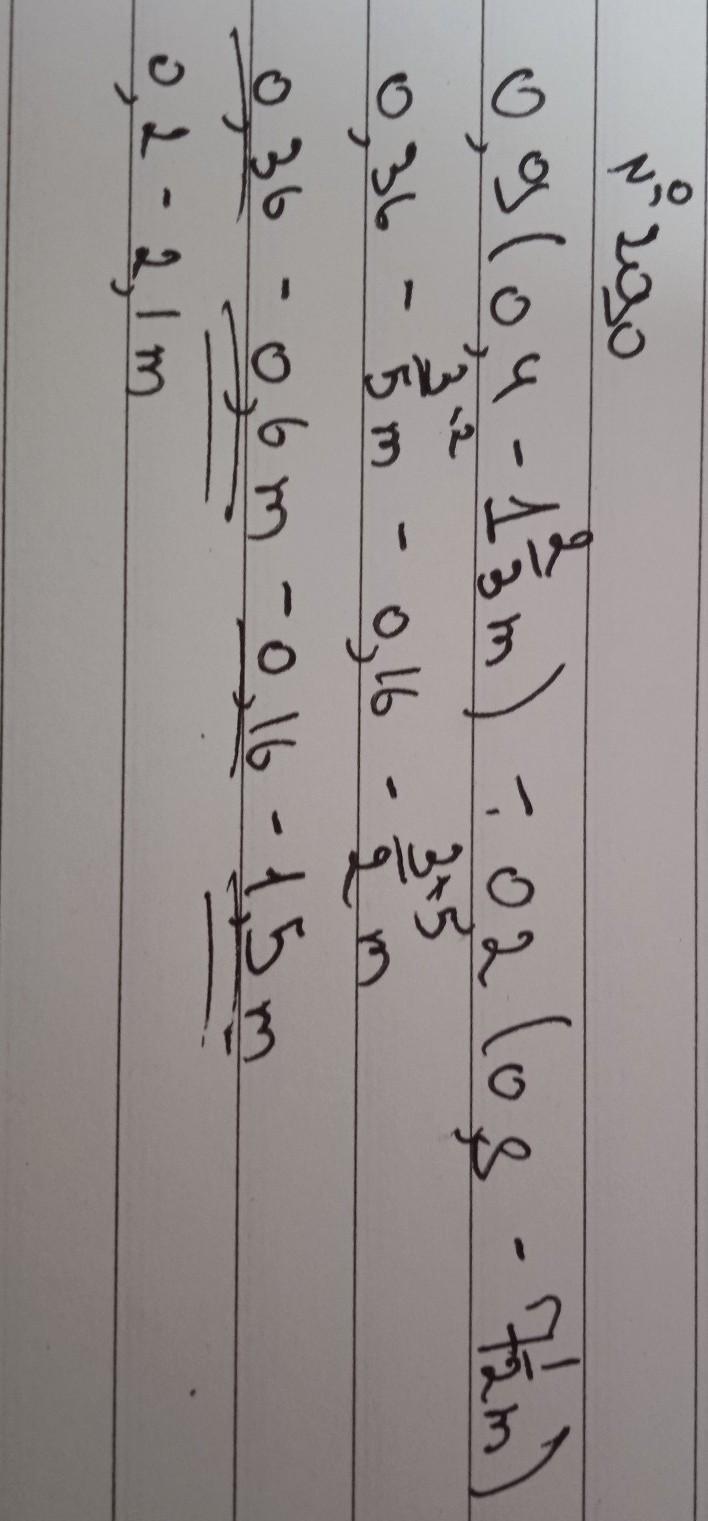 № 290
0,9(0,4 - 1 2/3 m) - 0 2(0,8 - 7 1/2 m)
0,36 - 3/5 m ·2 - 0,16 - 3/2 m ×5
0,36 - 0,6 m - 0,16 - 1,5 m
0,2 - 2,1 m